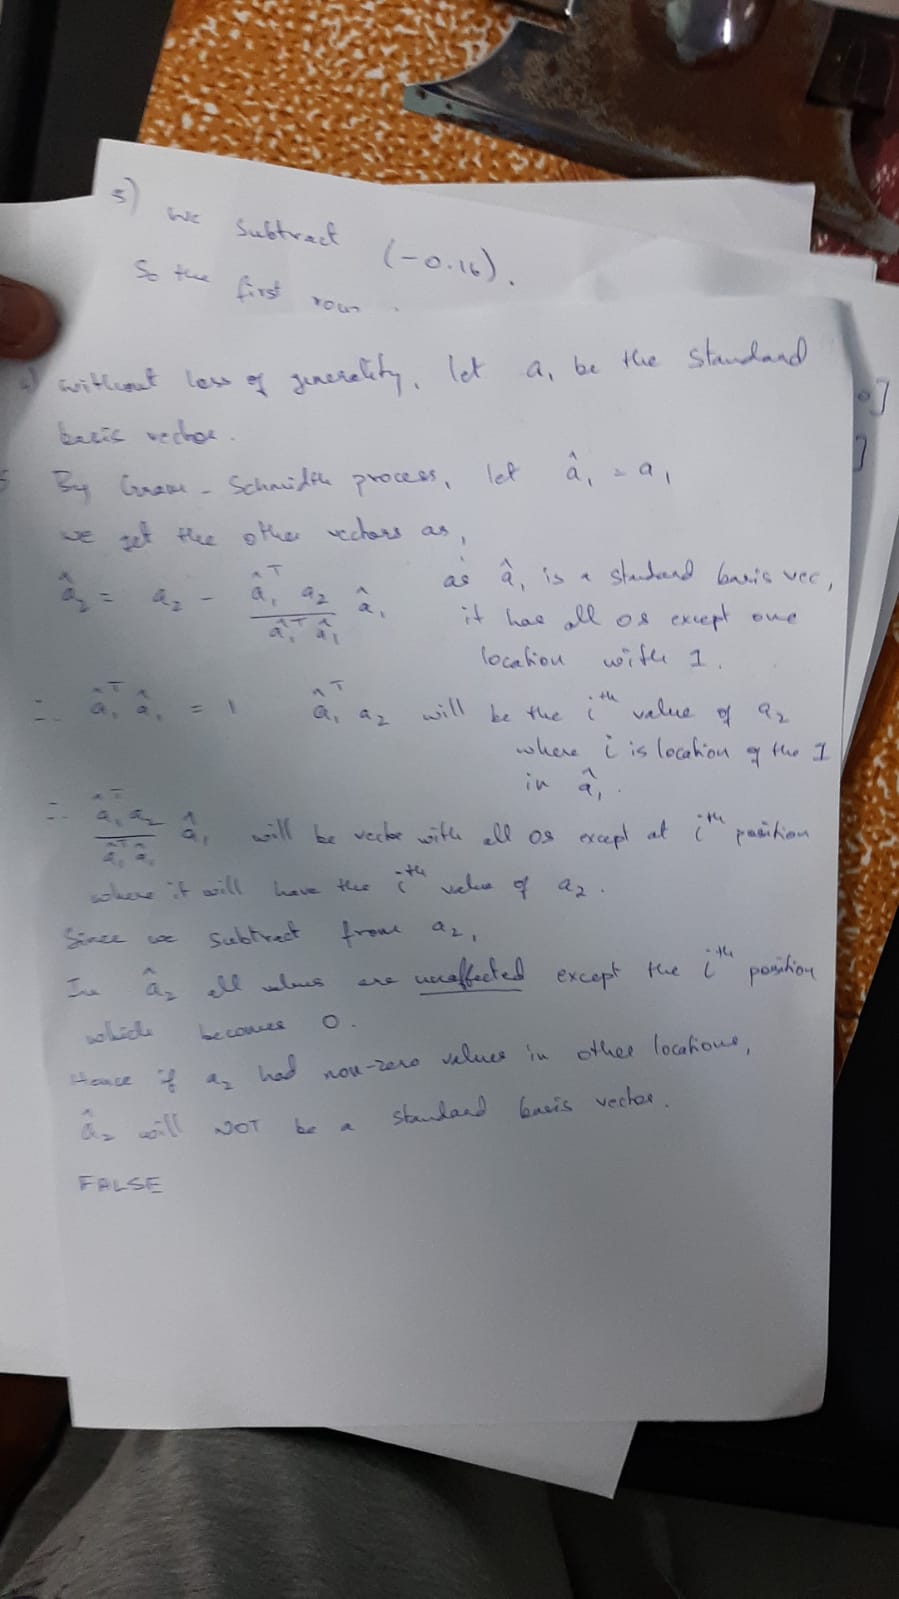 5) We subtract (-0.16).
So the first row.
o]
]
4) without loss of generality, let a₁ be the standard
basis vector.
By Gram - Schmidth process, let â₁ = a₁
we get the other vectors as,
â₂ = a₂ - (â₁ᵀ a₂ / â₁ᵀ â₁) â₁ as â₁ is a standard basis vec,
it has all 0s except one
location with 1.
∴ â₁ᵀ â₁ = 1 â₁ᵀ a₂ will be the iᵗʰ value of a₂
where i is location of the 1
in â₁.
∴ (â₁ᵀ a₂ / â₁ᵀ â₁) â₁ will be vector with all 0s except at iᵗʰ position
where it will have the iᵗʰ value of a₂.
Since we subtract from a₂,
In â₂ all values are unaffected except the iᵗʰ position
which becomes 0.
Hence if a₂ had non-zero values in other locations,
â₂ will NOT be a standard basis vector.
FALSE